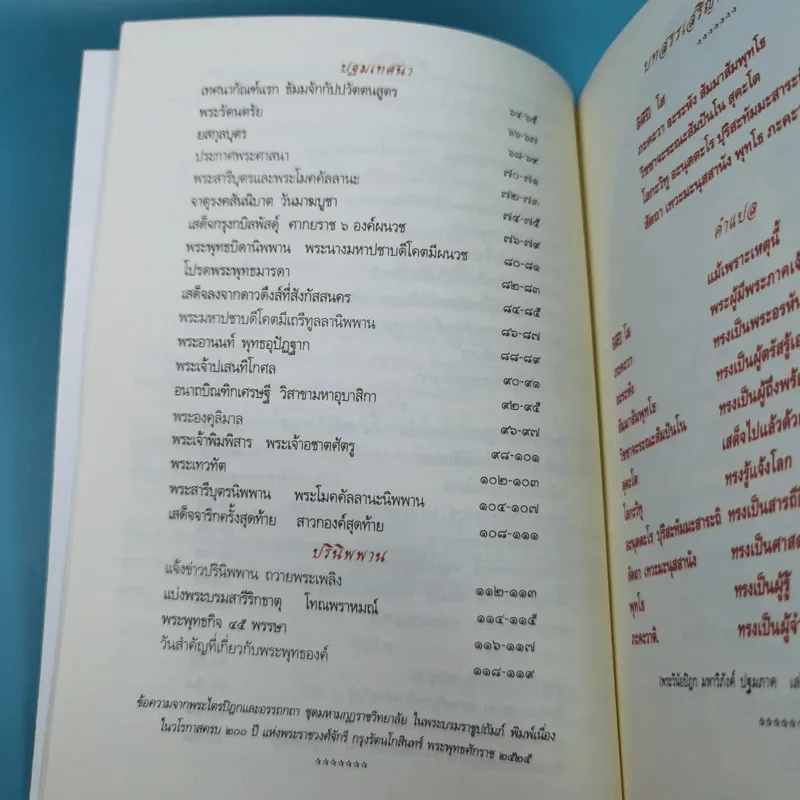 ปฐมเทศนา
เทศนากัณฑ์แรก ธัมมจักกัปปวัตตนสูตร ๖๔-๖๕
พระรัตนตรัย ๖๖-๖๗
ยสกุลบุตร ๖๘-๖๙
ประกาศพระศาสนา ๗๐-๗๑
พระสารีบุตรและพระโมคคัลลานะ ๗๒-๗๓
จาตุรงคสันนิบาต วันมาฆบูชา ๗๔-๗๕
เสด็จกรุงกบิลพัสดุ์ ศากยราช ๖ องค์ผนวช ๗๖-๗๙
พระพุทธบิดานิพพาน พระนางมหาปชาบดีโคตมีผนวช ๘๐-๘๑
โปรดพระพุทธมารดา ๘๒-๘๓
เสด็จลงจากดาวดึงส์ที่สังกัสสนคร ๘๔-๘๕
พระมหาปชาบดีโคตมีเถรีทูลลานิพพาน ๘๖-๘๗
พระอานนท์ พุทธอุปัฏฐาก ๘๘-๘๙
พระเจ้าปเสนทิโกศล ๙๐-๙๑
อนาถบิณฑิกเศรษฐี วิสาขามหาอุบาสิกา ๙๒-๙๕
พระองคุลิมาล ๙๖-๙๗
พระเจ้าพิมพิสาร พระเจ้าอชาตศัตรู ๙๘-๑๐๑
พระเทวทัต ๑๐๒-๑๐๓
พระสารีบุตรนิพพาน พระโมคคัลลานะนิพพาน ๑๐๔-๑๐๗
เสด็จจาริกครั้งสุดท้าย สาวกองค์สุดท้าย ๑๐๘-๑๑๑
ปรินิพพาน
แจ้งข่าวปรินิพพาน ถวายพระเพลิง ๑๑๒-๑๑๓
แบ่งพระบรมสารีริกธาตุ โทณพราหมณ์ ๑๑๔-๑๑๕
พระพุทธกิจ ๔๕ พรรษา ๑๑๖-๑๑๗
วันสำคัญที่เกี่ยวกับพระพุทธองค์ ๑๑๘-๑๑๙
ข้อความจากพระไตรปิฎกและอรรถกถา ชุดมหามกุฏราชวิทยาลัย ในพระบรมราชูปถัมภ์ พิมพ์เนื่อง
ในวโรกาสครบ ๒๐๐ ปี แห่งพระราชวงศ์จักรี กรุงรัตนโกสินทร์ พระพุทธศักราช ๒๕๒๕
บทสรรเสริญ
อิติปิ โส
ภะคะวา อะระหัง สัมมาสัมพุทโธ
วิชชาจะระณะสัมปันโน สุคะโต
โลกะวิทู อะนุตตะโร ปุริสะทัมมะสาระถิ
สัตถา เทวะมะนุสสานัง พุทโธ ภะคะวาติ
คำแปล
อิติปิ โส แม้เพราะเหตุนี้
ภะคะวา พระผู้มีพระภาคเจ้า
อะระหัง ทรงเป็นพระอรหัน
สัมมาสัมพุทโธ ทรงเป็นผู้ตรัสรู้เอ
วิชชาจะระณะสัมปันโน ทรงเป็นผู้ถึงพร้อ
สุคะโต เสด็จไปแล้วด้วย
โลกะวิทู ทรงรู้แจ้งโลก
อะนุตตะโร ปุริสะทัมมะสาระถิ ทรงเป็นสารถี
สัตถา เทวะมะนุสสานัง ทรงเป็นศาสด
พุทโธ ทรงเป็นผู้รู้
ภะคะวาติ. ทรงเป็นผู้จำ
(พระวินัยปิฎก มหาวิภังค์ ปฐมภาค เล่